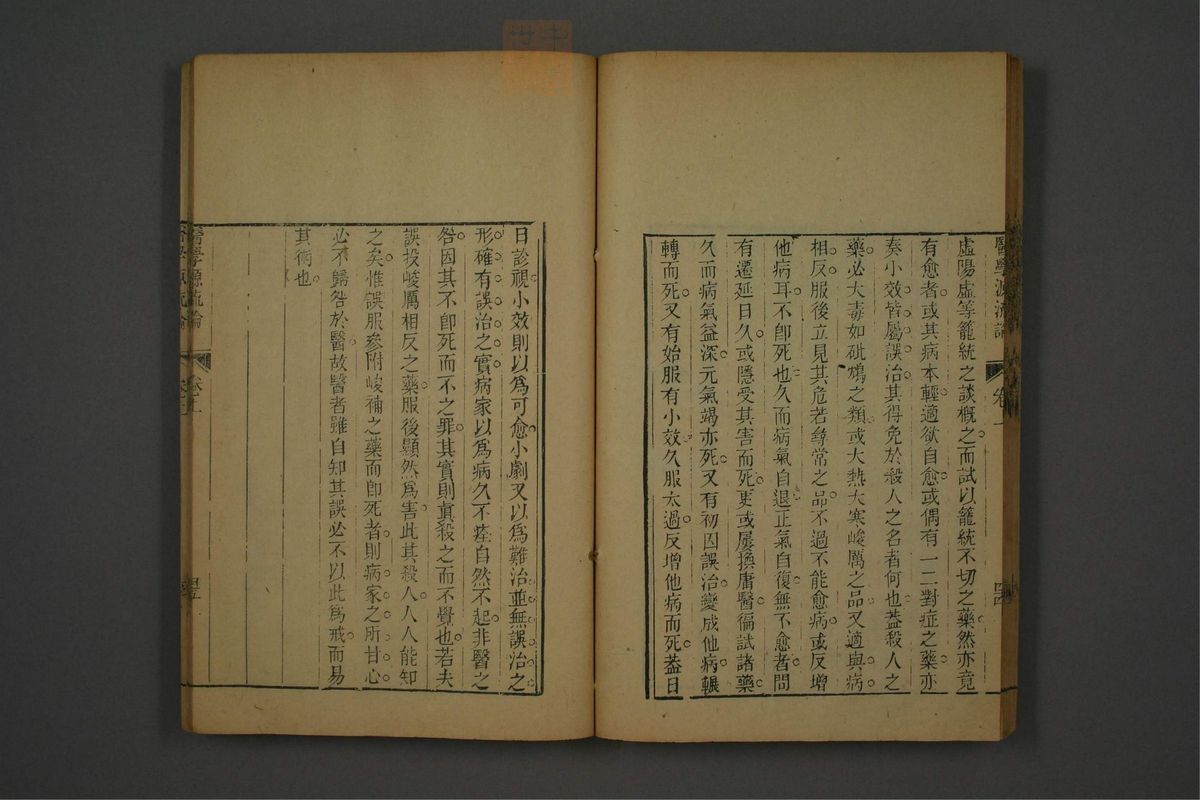 醫學源流論 卷
虛陽虛等籠統之談概之而試以籠統不切之藥然亦竟
有愈者或其病本輕適欲自愈或偶有一二對症之藥亦
奏小效皆屬誤治其得免於殺人之名者何也葢殺人之
藥必大毒如砒鴆之類或大熱大寒峻厲之品又適與病
相反服後立見其危若尋常之品不過不能愈病或反增
他病耳不卽死也久而病氣自退正氣自復無不愈者間
有遷延日久或隱受其害而死更或屢換庸醫徧試諸藥
久而病氣益深元氣竭亦死又有初因誤治變成他病輾
轉而死又有始服有小效久服太過反增他病而死葢日
日診視小效則以爲可愈小劇又以爲難治並無誤治之
形確有誤治之實病家以爲病久不痊自然不起非醫之
咎因其不卽死而不之罪其實則眞殺之而不覺也若夫
誤投峻厲相反之藥服後顯然爲害此其殺人人人能知
之矣惟誤服參附峻補之藥而卽死者則病家之所甘心
必不歸咎於醫故醫者雖自知其誤必不以此爲戒而易
其術也
醫學源流論 卷上